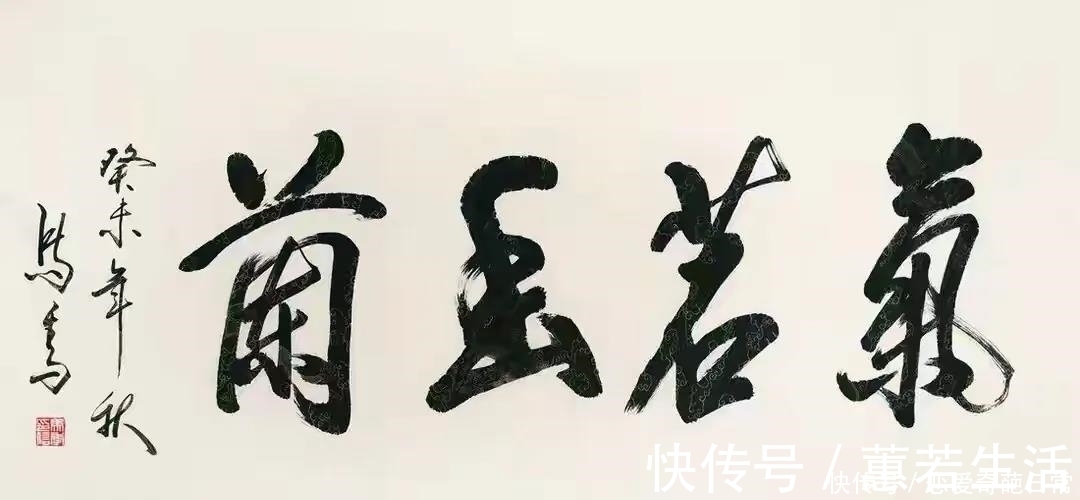 氣若幽蘭
癸未年秋
快传号 / 蕙若生活